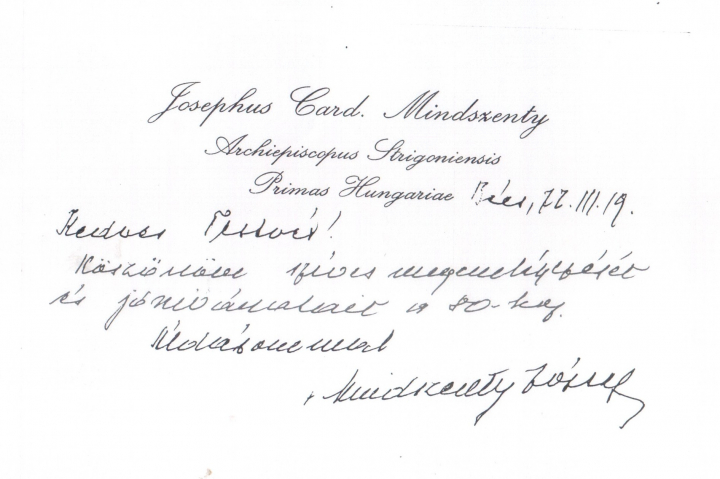 Josephus Card. Mindszenty
Archiepiscopus Strigoniensis
Primas Hungariae Bécs, 72. III. 19.
Kedves Testvér!
Köszönöm szíves megemlékezését
és jókívánatait a 80-hoz.
Áldásommal
+ Mindszenty József